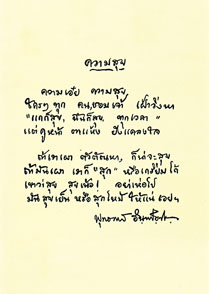 ความสุข
ความเอ๋ย ความสุข
ใครๆ ทุก คน ชอบเจ้า เฝ้าวิ่งหา
"แกก็สุข, ฉันก็สุข, ทุกเวลา"
แต่ดูหน้า ตาแห้ง ยังแคลงใจ
ถ้าเราเผา ตัวตัณหา, ก็น่าจะสุข
ถ้ามันเผา เราก็ "สุก" หรือเกรียมได้
เขาว่าสุข สุขเน้อ! อย่าเห่อไป
มันสุขเย็น หรือสุกไหม้ ให้แน่ เอยฯ
พุทธทาส อินทปัญโญ